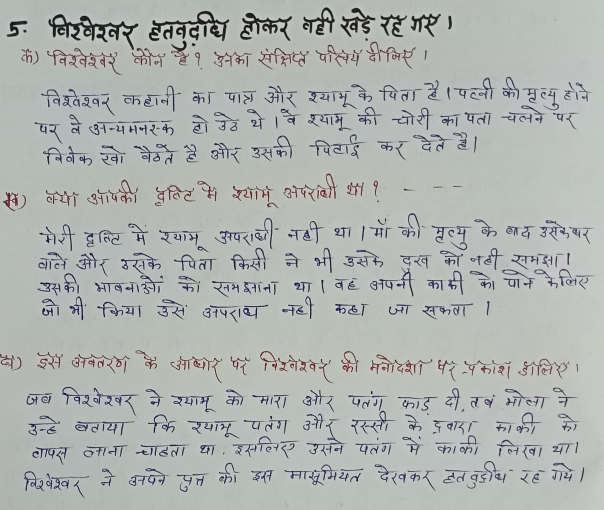 5. विश्वेश्वर हतवुद्धि होकर वही खड़े रह गए।
क) विश्वेश्वर कौन है? उनका संक्षिप्त परिचय दीजिए।
विश्वेश्वर कहानी का पात्र और श्यामू के पिता है। पत्नी की मृत्यु होने
पर वे अन्यमनस्क हो उठे थे। वे श्यामू की चोरी का पता चलने पर
विवेक खो बैठते है और उसकी पिटाई कर देते है।
ख) क्या आपकी दृष्टि मे श्यामू अपराधी था? - - -
मेरी दृष्टि में श्यामू अपराधी नही था। माँ की मृत्यु के बाद उसके घर
वाले और उसके पिता किसी ने भी उसके दुख को नही समझा।
उसकी भावनाओं को समझाना था। वह अपनी काकी को पाने के लिए
जो भी किया उसे अपराध नही कहा जा सकता।
घ) इस अवतरण के आधार पर विश्वेश्वर की मनोदशा पर प्रकाश डालिए।
जब विश्वेश्वर ने श्यामू को मारा और पतंग फाड़ दी, तब भोला ने
उन्हे बताया कि श्यामू पतंग और रस्सी के द्वारा काकी को
वापस लाना चाहता था. इसलिए उसने पतंग में काकी लिखा था।
विश्वेश्वर ने अपने पुत्र की इस मासूमियत देखकर हतवुद्धि रह गये।